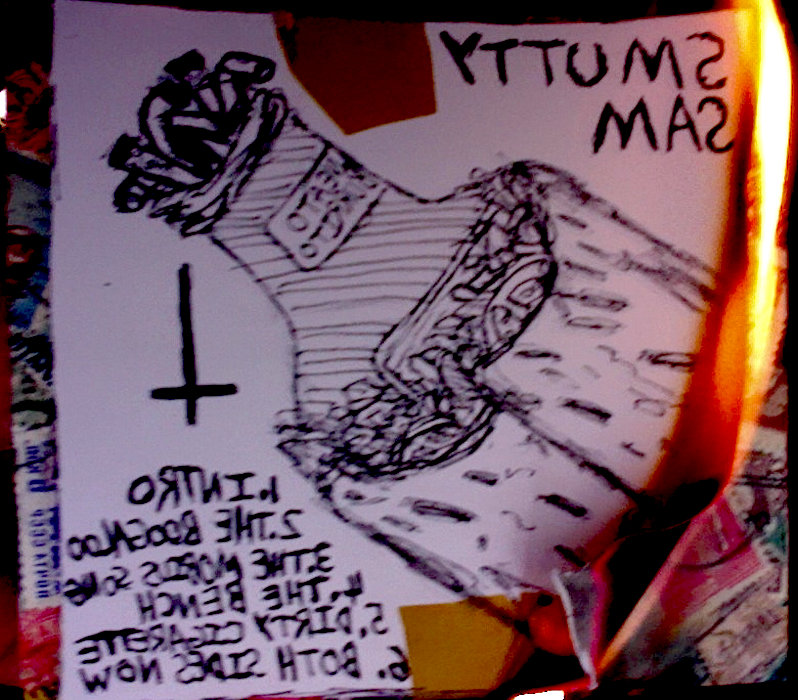 SMUTTY
SAM
1. INTRO
2. THE BOOGALOO
3. THE WORDS SONG
4. THE BENCH
5. DIRTY CIGARETTE
6. BOTH SIDES NOW